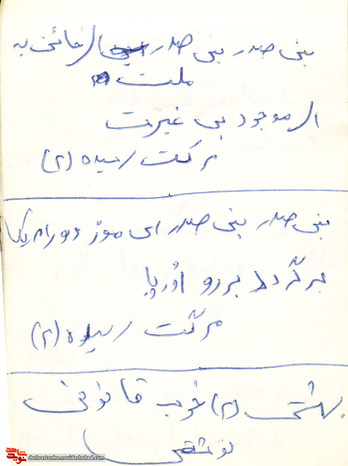 بنی صدر بنی صدر ای خائن به
ملت
ای موجود بی غیرت
مرگت رسیده (۲)
بنی صدر بنی صدر ای موز دور امریکا
برگرد برو اروپا
مرگت رسیده (۲)
بهشتی (۲) خوب قانونی
نوشتی